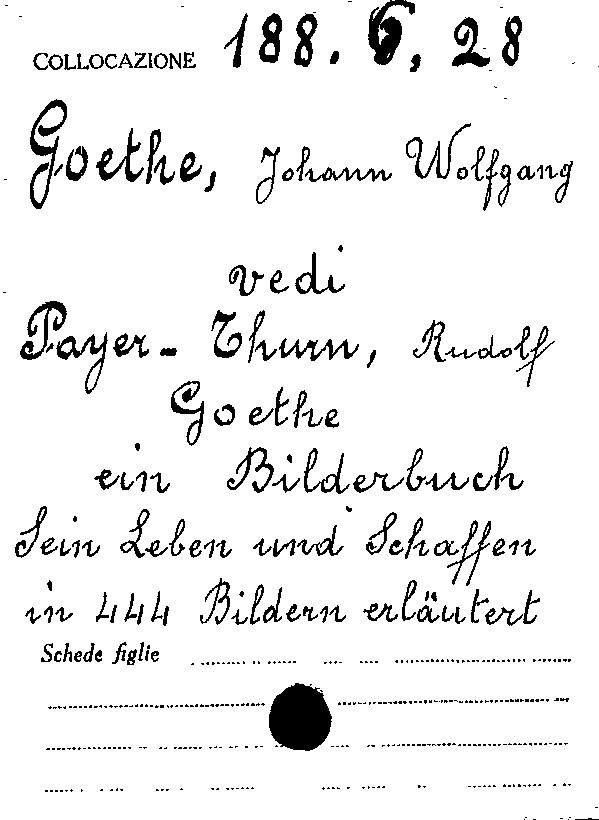 COLLOCAZIONE 188. 6, 28
Goethe, Johann Wolfgang
vedi
Payer-Thurn, Rudolf
Goethe
ein Bilderbuch
Sein Leben und Schaffen
in 444 Bildern erläutert
Schede figlie